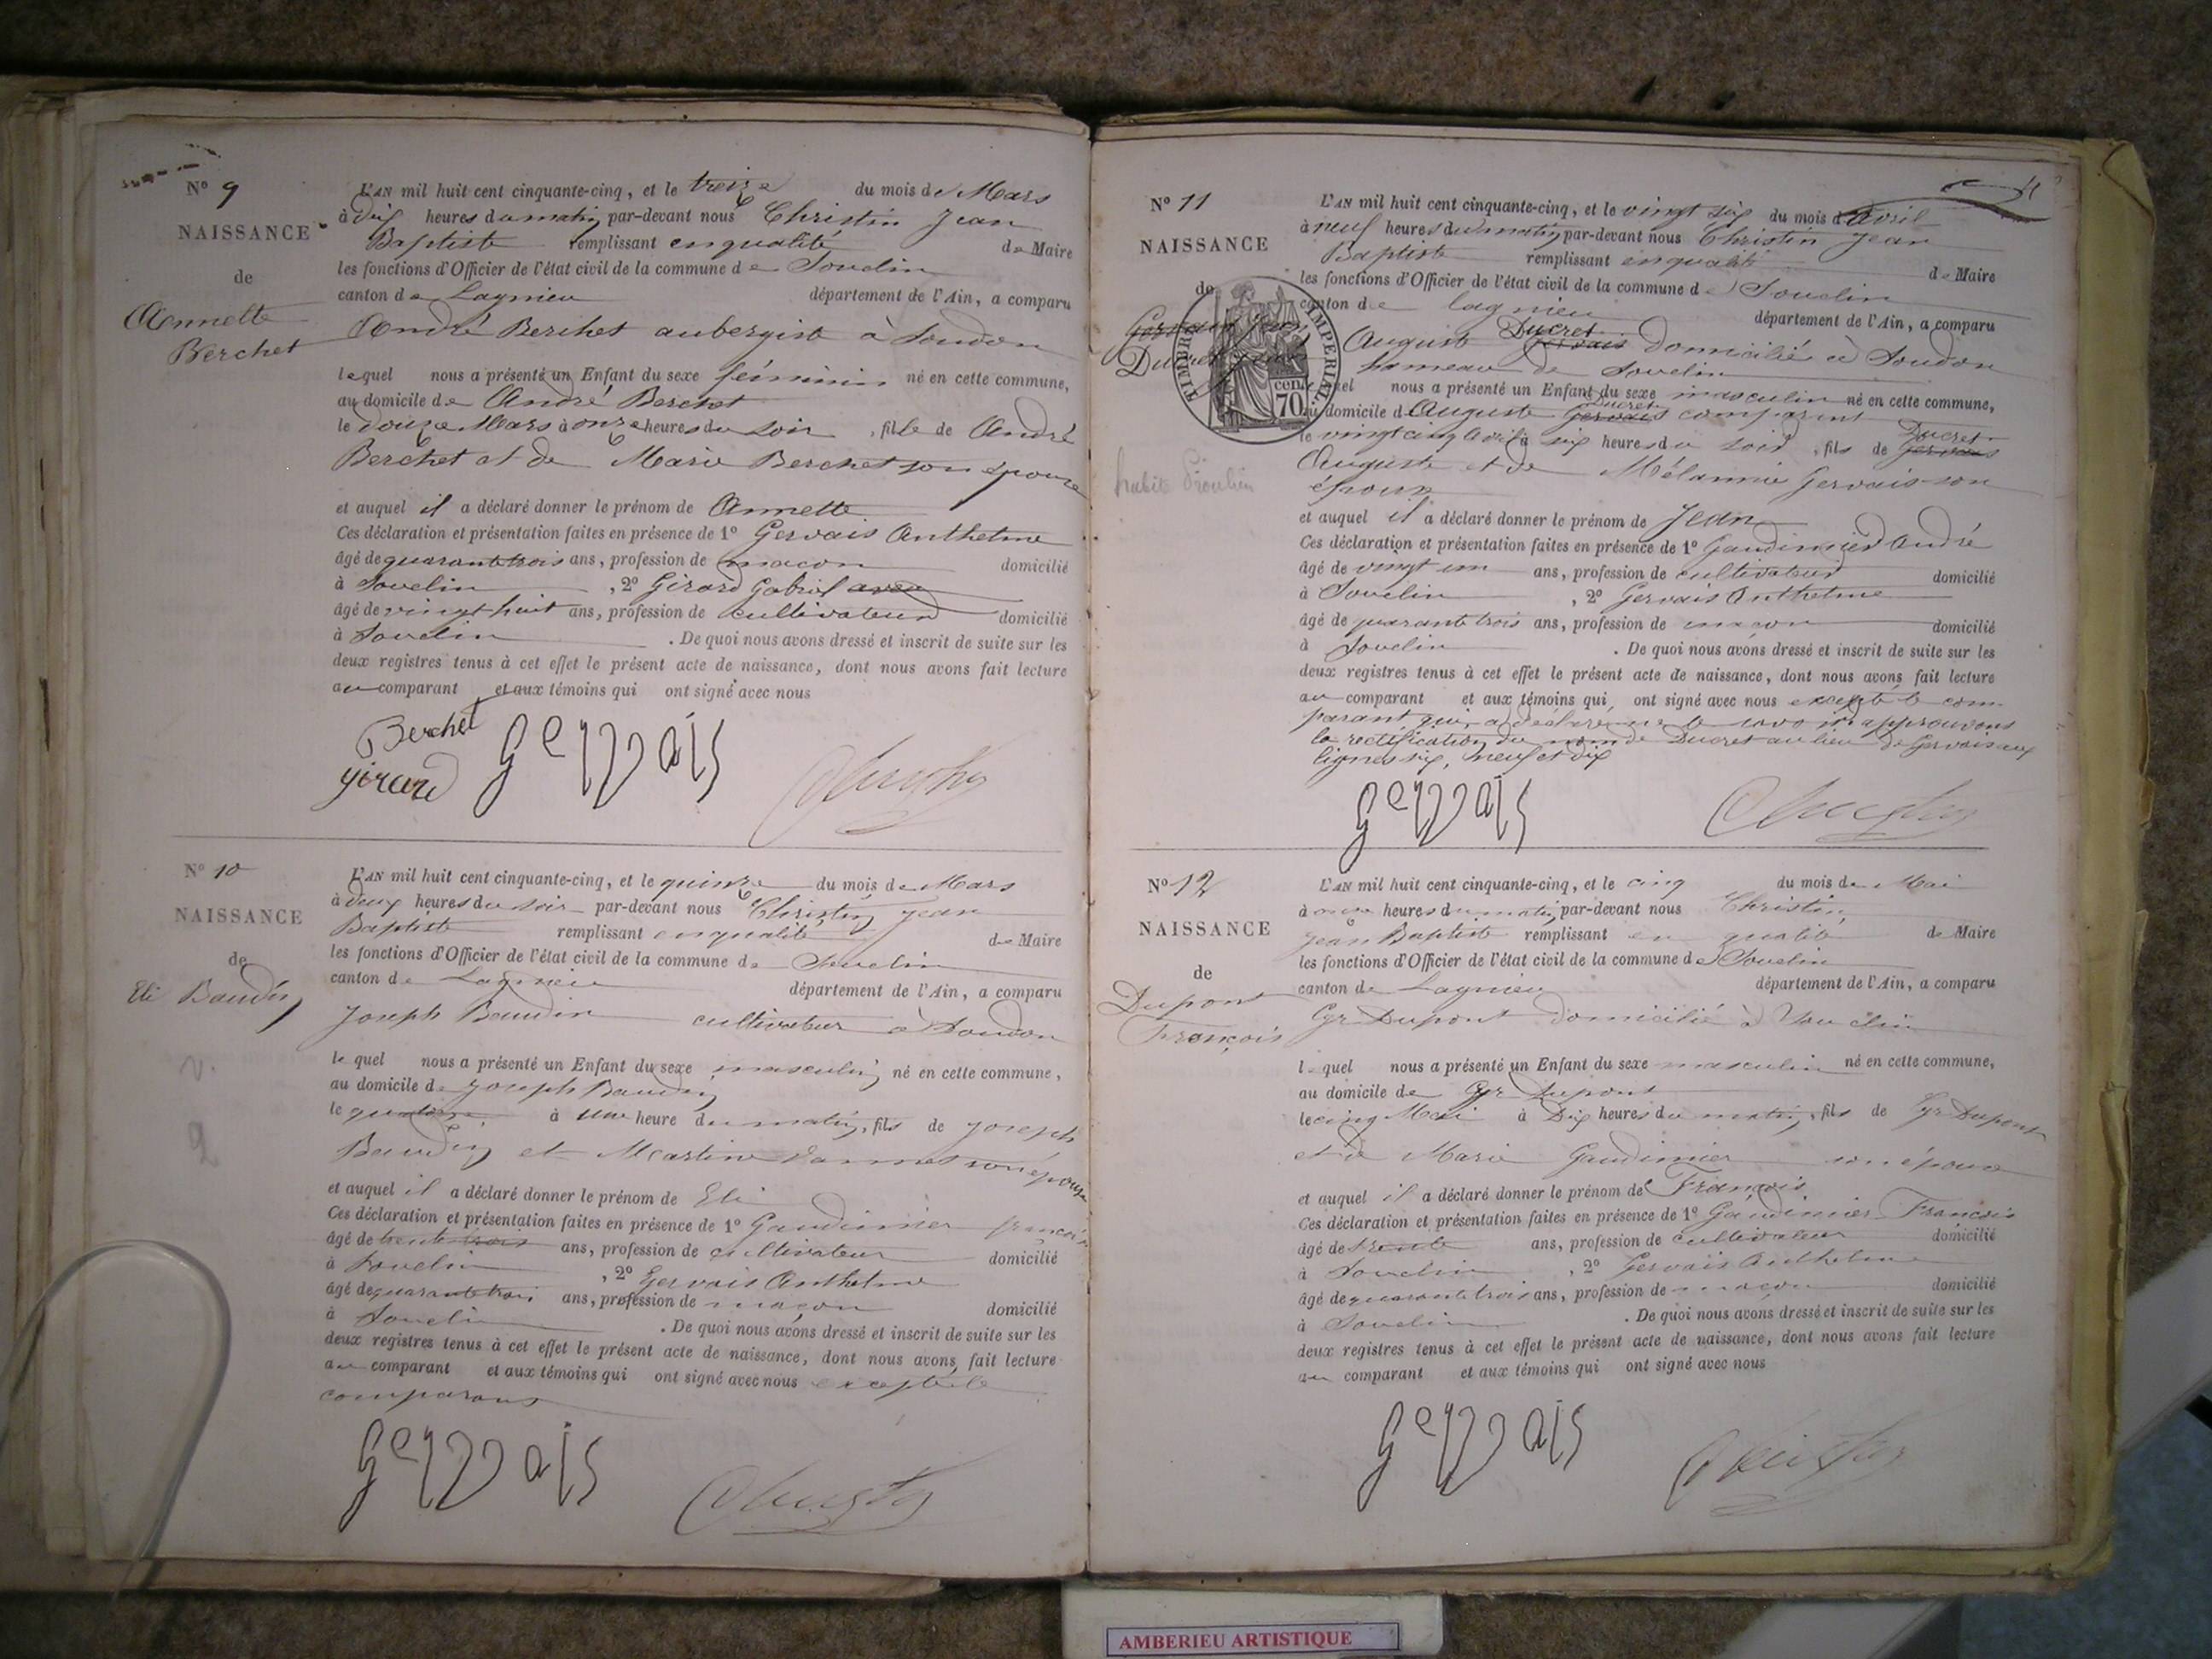 N° 9
NAISSANCE
de
Annette
Berchet
L'AN mil huit cent cinquante-cinq, et le treize du mois de Mars
à dix heures du matin par-devant nous Christin Jean
Baptiste remplissant en qualité de Maire
les fonctions d'Officier de l'état civil de la commune de Souclin
canton de Lagnieu département de l'Ain, a comparu
André Berchet aubergiste à Soudon
lequel nous a présenté un Enfant du sexe féminin né en cette commune,
au domicile de André Berchet
le douze Mars à onze heures du soir, fille de André
Berchet et de Marie Berchet son épouse
et auquel il a déclaré donner le prénom de Annette
Ces déclaration et présentation faites en présence de 1° Gervais Anthelme
âgé de quarante trois ans, profession de macon domicilié
à Souclin, 2° Girard Gabriel
âgé de vingt huit ans, profession de cultivateur domicilié
à Souclin. De quoi nous avons dressé et inscrit de suite sur les
deux registres tenus à cet effet le présent acte de naissance, dont nous avons fait lecture
au comparant et aux témoins qui ont signé avec nous
Berchet
Gervais
girard
Christin
N° 10
NAISSANCE
de
Eli Baudin
L'AN mil huit cent cinquante-cinq, et le quinze du mois de Mars
à deux heures du soir par-devant nous Christin Jean
Baptiste remplissant en qualité de Maire
les fonctions d'Officier de l'état civil de la commune de Souclin
canton de Lagnieu département de l'Ain, a comparu
Joseph Baudin cultivateur à Soudon
le quel nous a présenté un Enfant du sexe masculin né en cette commune,
au domicile de Joseph Baudin
le quatorze à une heure du matin, fils de Joseph
Baudin et Martine son épouse
et auquel il a déclaré donner le prénom de Eli
Ces déclaration et présentation faites en présence de 1° Gaudinier françois
âgé de trente trois ans, profession de cultivateur domicilié
à Souclin, 2° Gervais Anthelme
âgé de quarante trois ans, profession de macon domicilié
à Souclin. De quoi nous avons dressé et inscrit de suite sur les
deux registres tenus à cet effet le présent acte de naissance, dont nous avons fait lecture
au comparant et aux témoins qui ont signé avec nous excepté le
comparans
Gervais
Christin
N° 11
NAISSANCE
de
Gervais Jean
Ducret Jean
TIMBRE IMPERIAL
70 cen.
L'AN mil huit cent cinquante-cinq, et le vingt six du mois d'Avril
à neuf heures du matin par-devant nous Christin Jean
Baptiste remplissant en qualité de Maire
les fonctions d'Officier de l'état civil de la commune de Souclin
canton de lagnieu département de l'Ain, a comparu
Auguste Ducret Gervais Domicilié à Soudon
hameau de Souclin
quel nous a présenté un Enfant du sexe masculin né en cette commune,
au domicile d Auguste Ducret Gervais comparant
le vingt cinq avril à six heures du soir, fils de Ducret Gervais
Auguste et de Mélannie Gervais son
épouse
et auquel il a déclaré donner le prénom de Jean
Ces déclaration et présentation faites en présence de 1° Gaudinier André
âgé de vingt un ans, profession de cultivateur domicilié
à Souclin, 2° Gervais Anthelme
âgé de quarante trois ans, profession de macon domicilié
à Souclin. De quoi nous avons dressé et inscrit de suite sur les
deux registres tenus à cet effet le présent acte de naissance, dont nous avons fait lecture
au comparant et aux témoins qui ont signé avec nous excepté le com
parant qui a déclaré ne le savoir approuvons
la rectification du nom de Ducret au lieu de Gervais aux
lignes six, neuf et dix
Gervais
Christin
N° 12
NAISSANCE
de
Dupont
François
L'AN mil huit cent cinquante-cinq, et le cinq du mois de Mai
à onze heures du matin par-devant nous Christin
Jean Baptiste remplissant en qualité de Maire
les fonctions d'Officier de l'état civil de la commune de Souclin
canton de Lagnieu département de l'Ain, a comparu
Cyr Dupont domicilié à Souclin
lequel nous a présenté un Enfant du sexe masculin né en cette commune,
au domicile de Cyr Dupont
le cinq Mai à Dix heures du matin, fils de Cyr Dupont
et de Marie Gaudinier son épouse
et auquel il a déclaré donner le prénom de François
Ces déclaration et présentation faites en présence de 1° Gaudinier François
âgé de trente ans, profession de cultivateur domicilié
à Souclin, 2° Gervais Anthelme
âgé de quarante trois ans, profession de macon domicilié
à Souclin. De quoi nous avons dressé et inscrit de suite sur les
deux registres tenus à cet effet le présent acte de naissance, dont nous avons fait lecture
au comparant et aux témoins qui ont signé avec nous
Gervais
Christin
AMBERIEU ARTISTIQUE